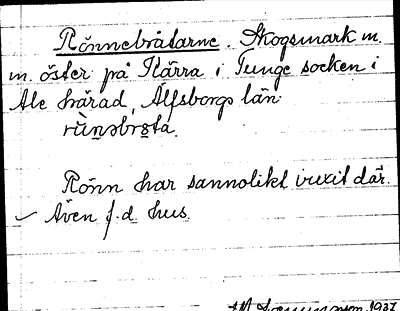 Rönnebråtarne. Skogsmark m.
m. öster på Skårra i Tunge socken i
Ale härad, Älfsborgs län
Rönn har sannolikt vuxit där.
✓ Även f.d. hus.
1937